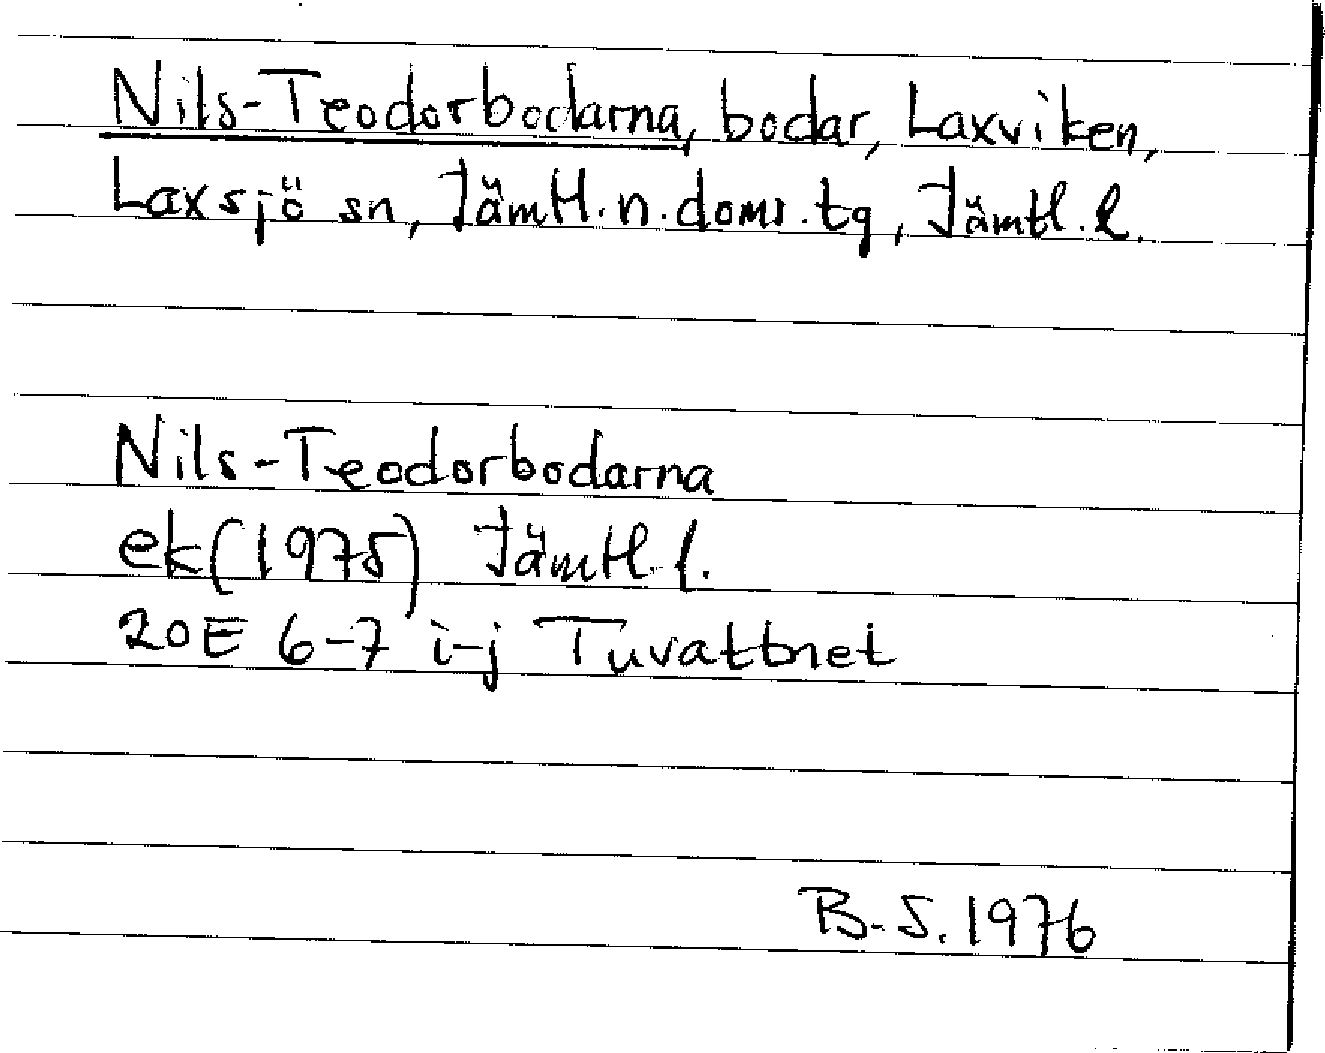 Nils-Teodorbodarna, bodar, Laxviken,
Laxsjö sn, Jämtl.n.doms.tg, Jämtl.l.
Nils-Teodorbodarna
ek(1975) Jämtl.l.
20E 6-7 i-j Tuvattnet
B-S.1976